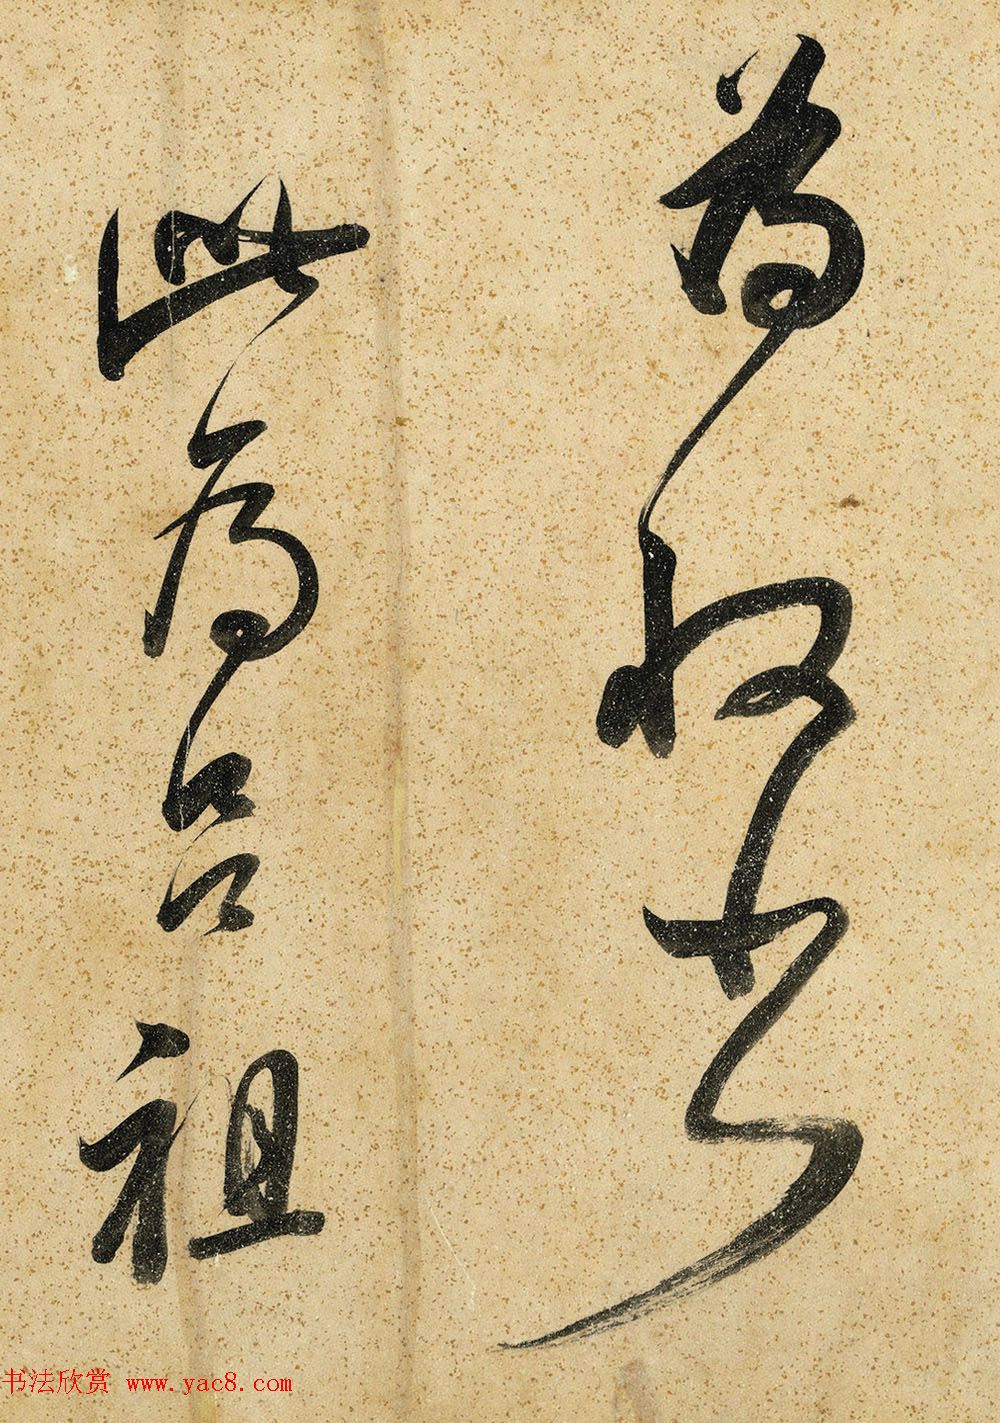 為
此為吕祖
书法欣赏 www.yac8.com